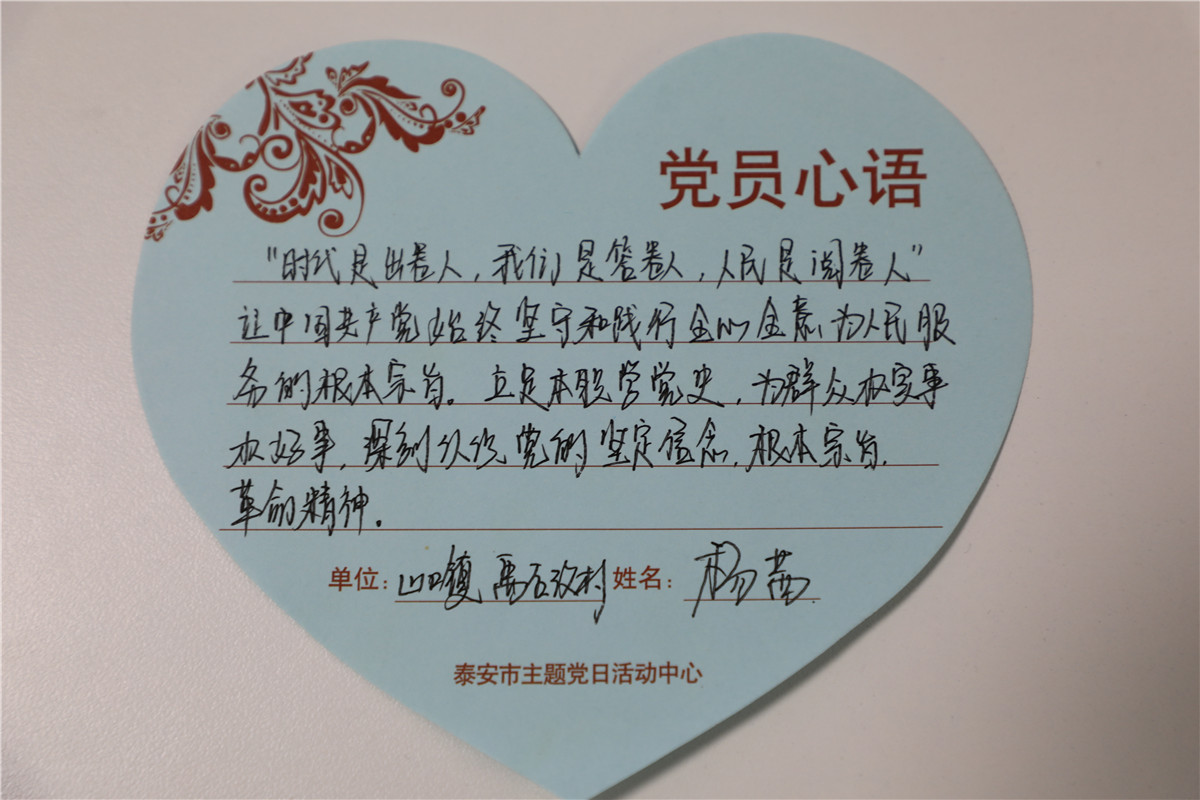 党员心语
“时代是出卷人，我们是答卷人，人民是阅卷人”
让中国共产党始终坚守和践行全心全意为人民服
务的根本宗旨。立足本职学党史，为群众办实事
办好事，深刻认优党的坚定信念，根本宗旨，
革命精神。
单位：山口镇 禹石汶村 姓名：杨茜
泰安市主题党日活动中心